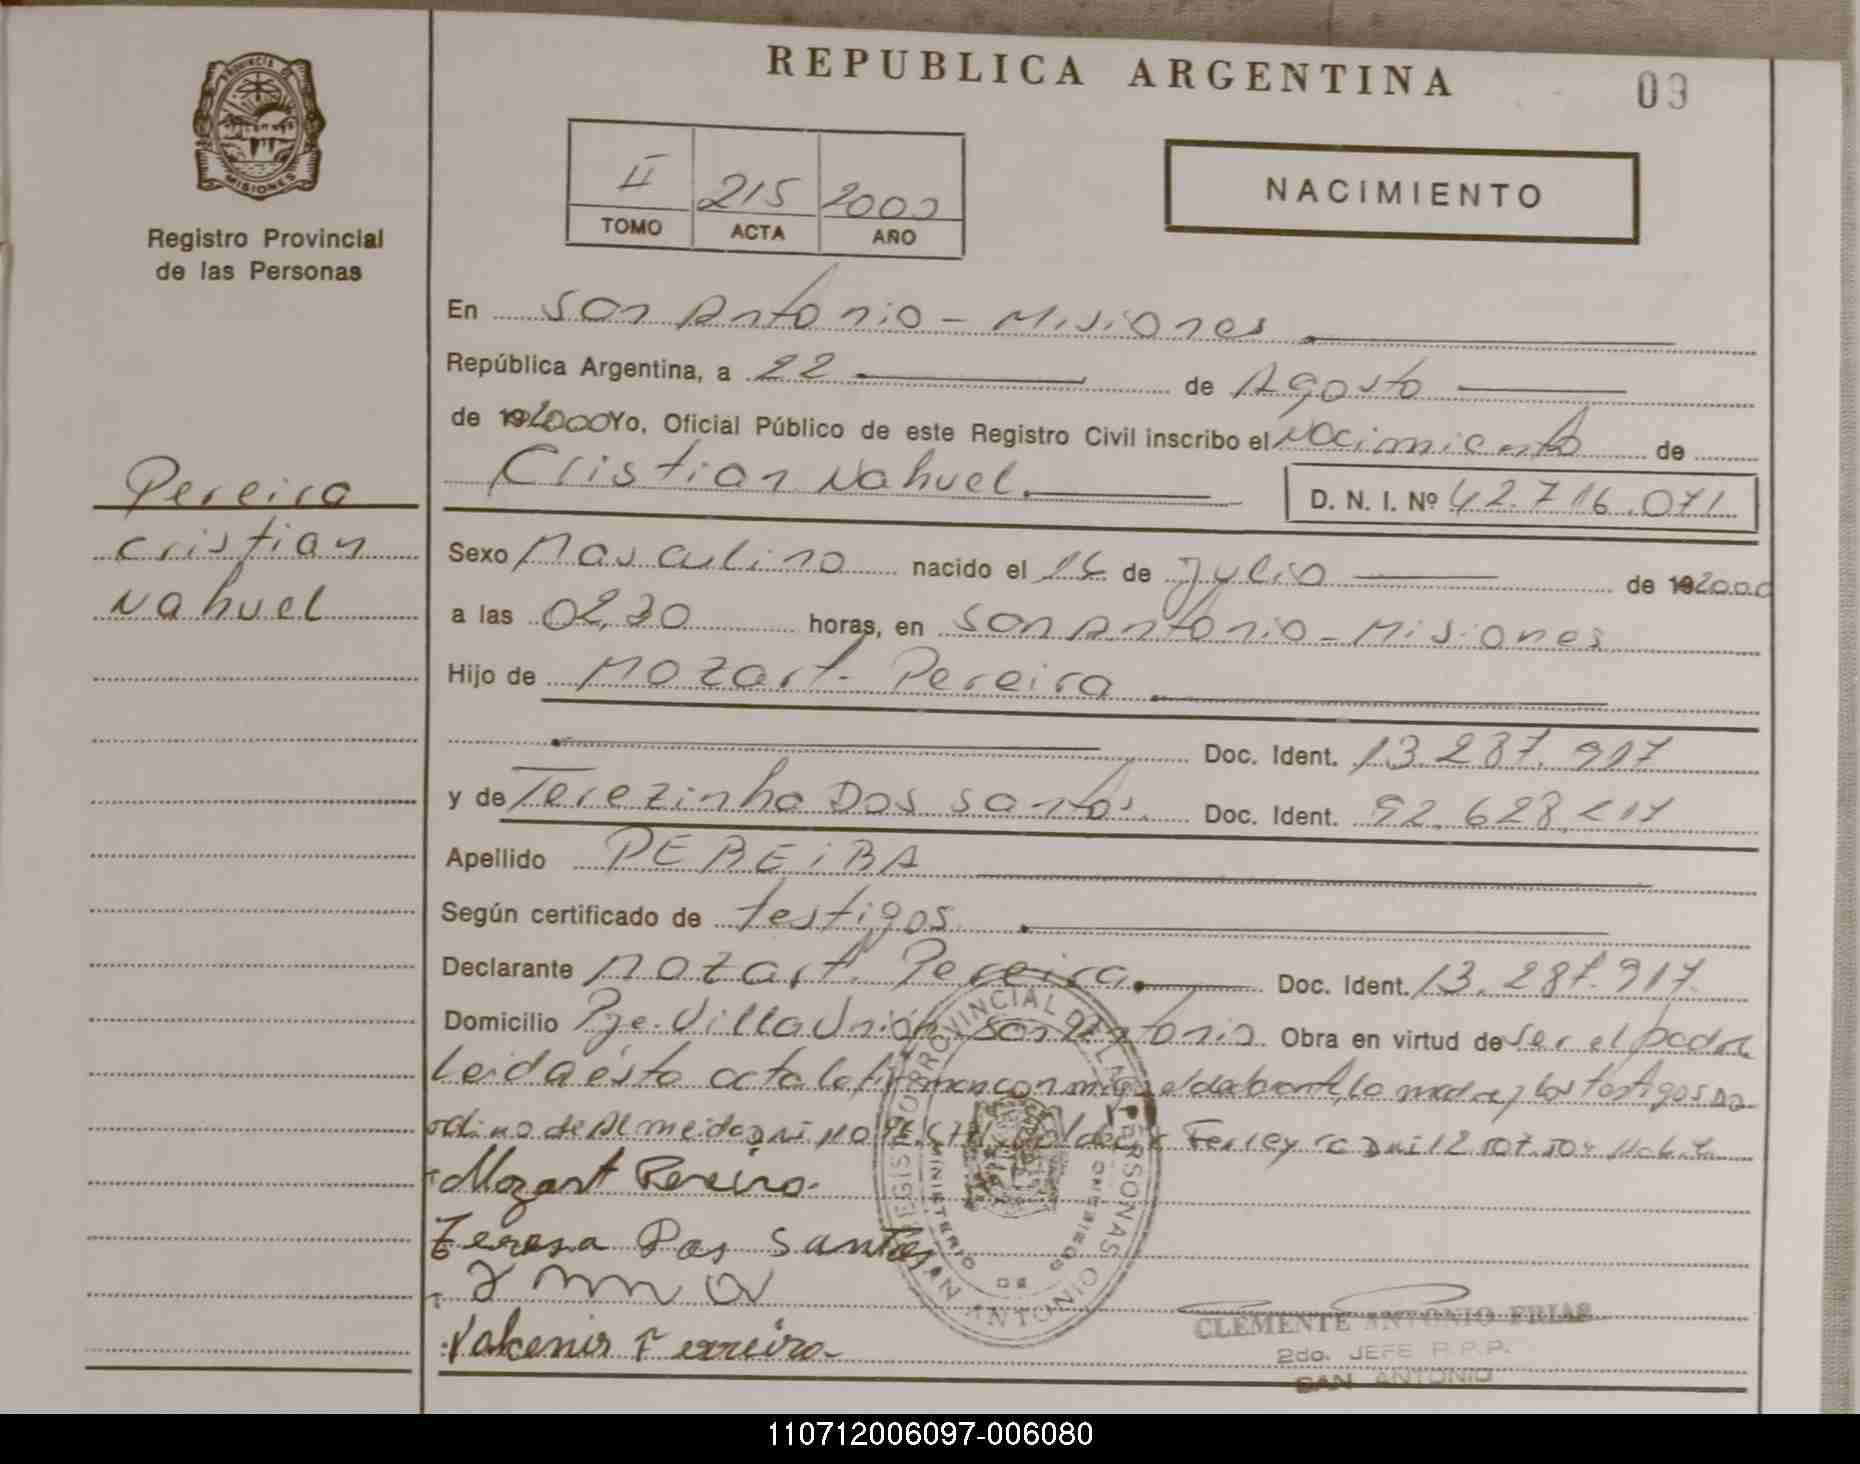 REPUBLICA ARGENTINA
09
PROVINCIA DE
MISIONES
Registro Provincial
de las Personas
II 215 2000
TOMO ACTA AÑO
NACIMIENTO
En San Antonio - Misiones
República Argentina, a 22 de Agosto
de 192000 Yo, Oficial Público de este Registro Civil inscribo el Nacimiento de
Cristian Nahuel D. N. I. Nº 42.716.071
Pereira
Cristian
Nahuel
Sexo Masculino nacido el de Julio de 192000
a las 02,30 horas, en San Antonio - Misiones
Hijo de Mozart Pereira
Doc. Ident. 13.287.917
y de Terezinha Dos Santos. Doc. Ident. 92.628.
Apellido PEREiRA
Según certificado de testigos
Declarante Mozart Pereira Doc. Ident. 13.287.917.
Domicilio Pje. Villa Unión San Antonio. Obra en virtud de ser el padre
Leida ésta acta la firman conmigo el declarante, la madre y los testigos
de Almeida
Mozart Pereira.
Teresa Dos Santos
Valcenir Ferreira
REGISTRO PROVINCIAL DE LAS PERSONAS
MINISTERIO DE GOBIERNO
SAN ANTONIO
CLEMENTE ANTONIO FRIAS
2do. JEFE R.P.P.
SAN ANTONIO
110712006097-006080